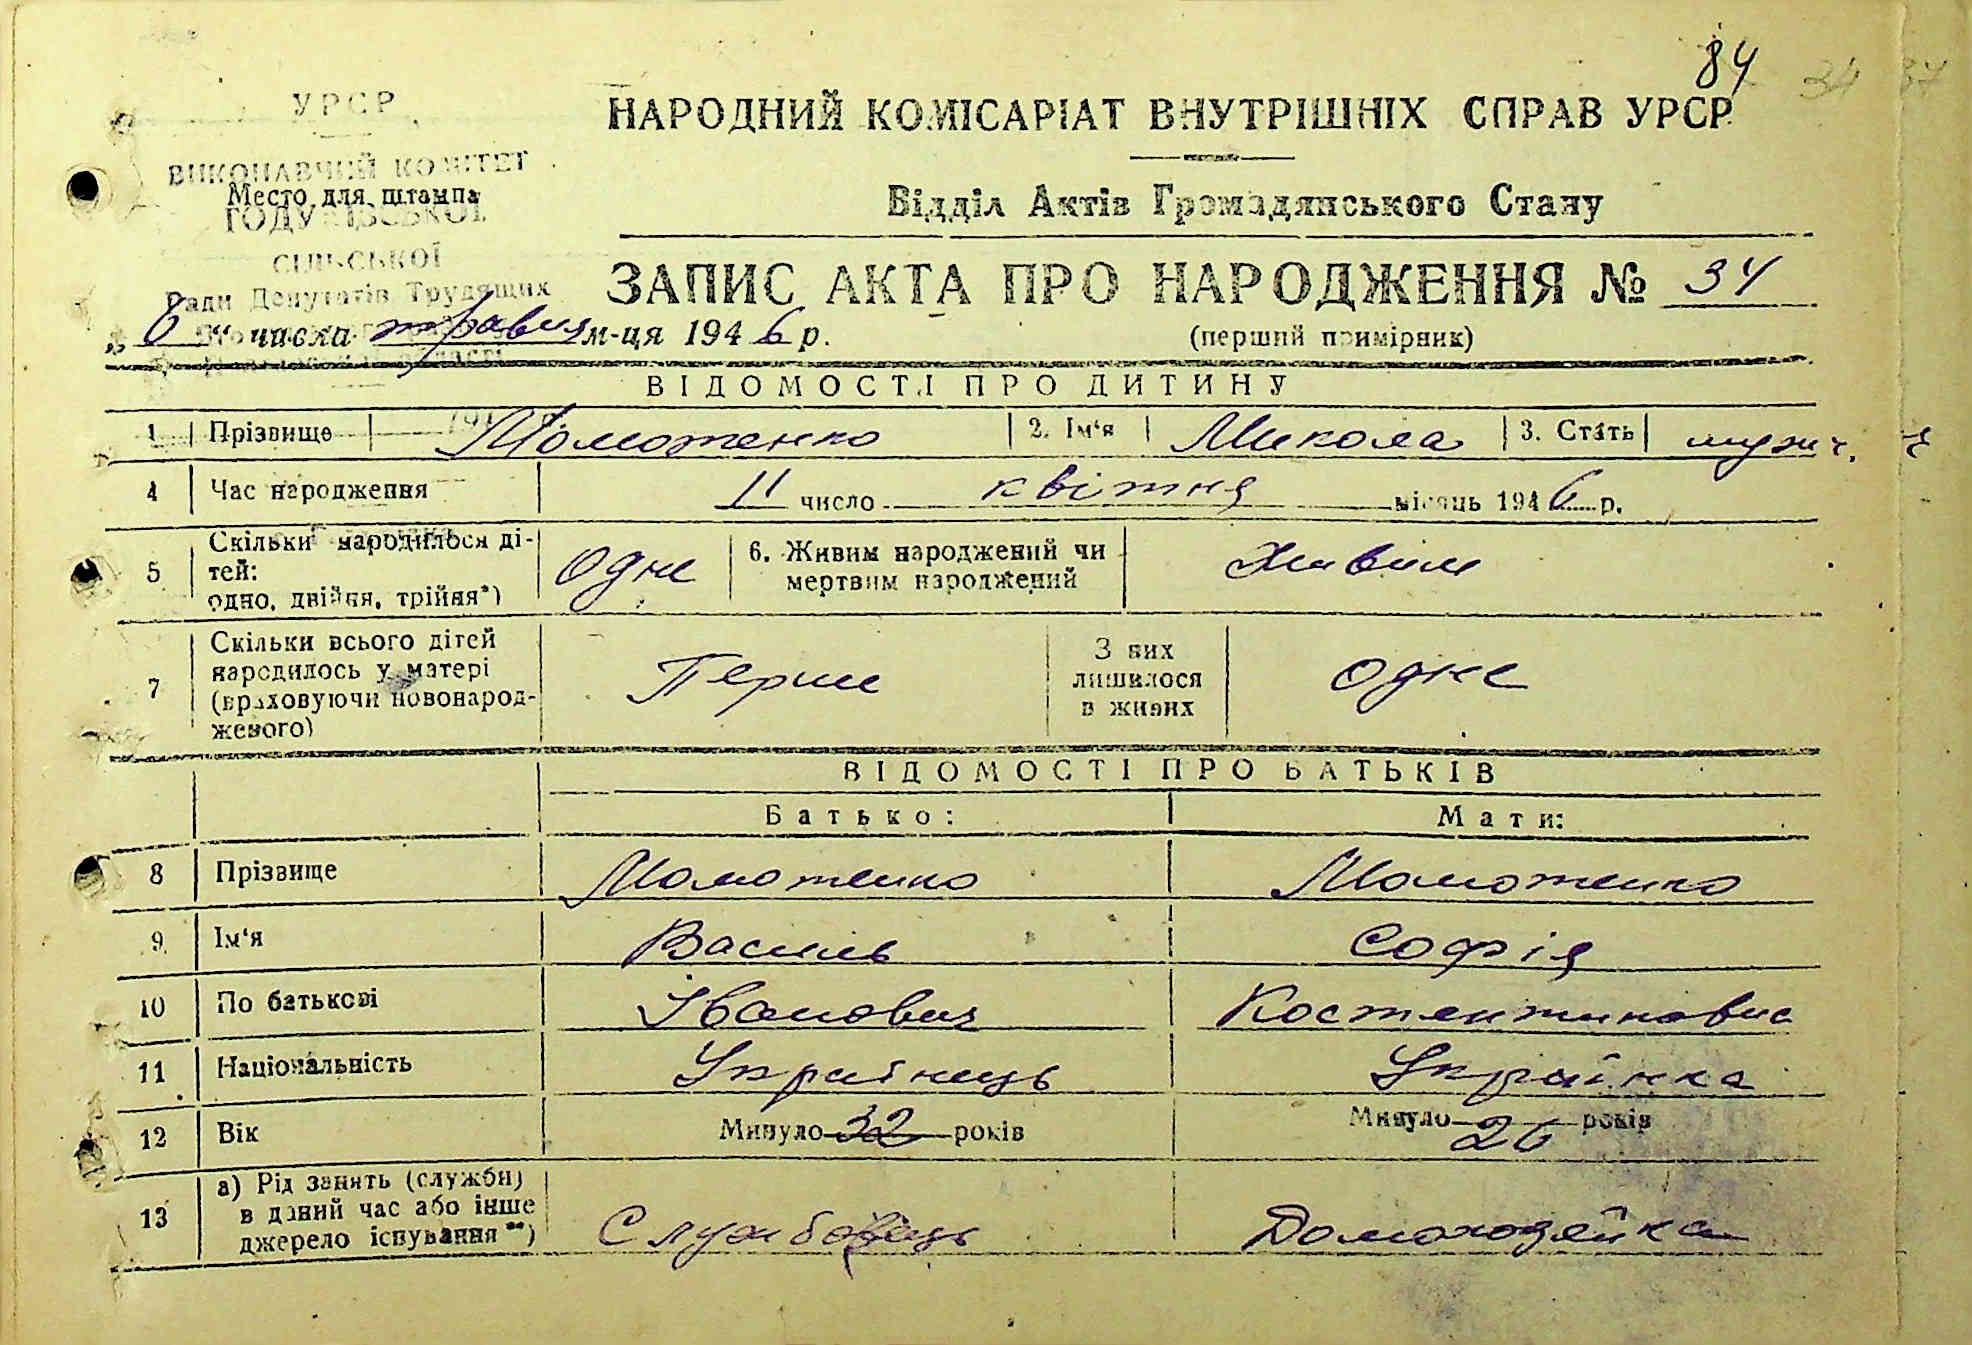 84
УРСР
НАРОДНИЙ КОМІСАРІАТ ВНУТРІШНІХ СПРАВ УРСР
ВИКОНАВЧИЙ КОМІТЕТ
Место для штампа
Відділ Актів Громадянського Стану
СІЛЬСЬКОЇ
Ради Депутатів Трудящих
ЗАПИС АКТА ПРО НАРОДЖЕННЯ № 34
„6“ числа травня м-ця 1946 р.
(перший примірник)
ВІДОМОСТІ ПРО ДИТИНУ
1 Прізвище Момотенко 2. Ім‘я Микола 3. Стать мужч.
4 Час народження 11 число квітня місяць 1946 р.
5 Скільки народилося дітей: одно, двійня, трійня*) Одне 6. Живим народжений чи мертвим народжений Живим
7 Скільки всього дітей народилось у матері (враховуючи новонародженого) Перше З них лишилося в живих одне
ВІДОМОСТІ ПРО БАТЬКІВ
Батько: Мати:
8 Прізвище Момотенко Момотенко
9 Ім‘я Василь Софія
10 По батькові Іванович Костянтиновна
11 Національність Українець Українка
12 Вік Минуло 32 років Минуло 26 років
13 а) Рід занять (служби) в даний час або інше джерело існування**) Службовець Домохозяйка